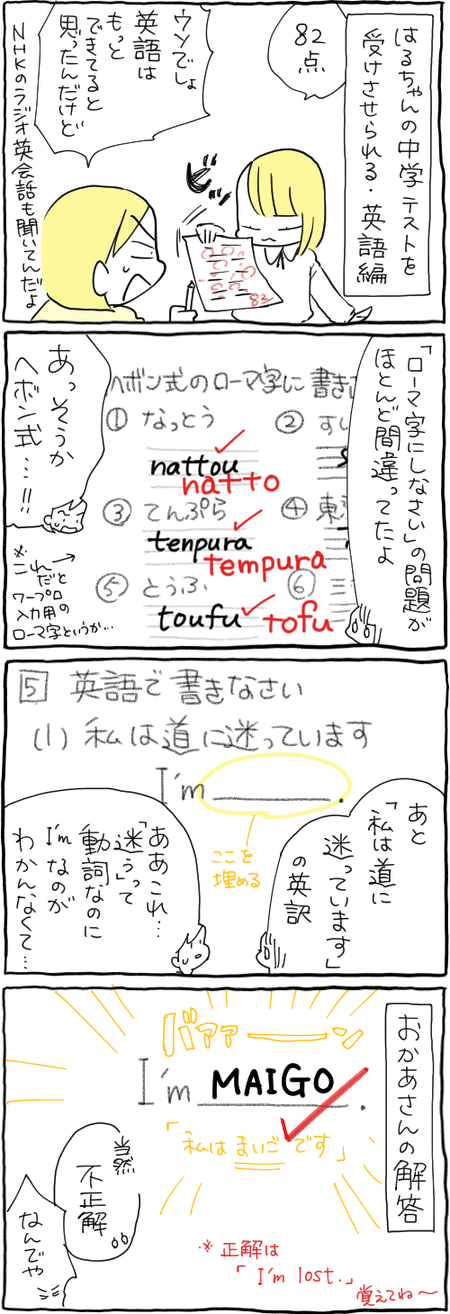 はるちゃんの中学テストを
受けさせられる・英語編
82
点
ウソでしょ
英語は
もっと
できてると
思ったんだけど
NHKのラジオ英会話も聞いてんだよ
ピッ
82
「ローマ字にしなさい」の問題が
ほとんど間違ってたよ
ヘボン式のローマ字に書き
① なっとう
② すし
nattou
natto
③ てんぷら
④ 東
tenpura
tempura
⑤ とうふ
⑥
toufu
tofu
あっそうか
ヘボン式…!!
※
これ→
だと
ワープロ
入力用の
ローマ字というか…
5 英語で書きなさい
(1) 私は道に迷っています
I'm ______.
ここを
埋める
あと
「私は道に
迷っています」
の英訳
ああこれ…
「迷う」って
動詞なのに
I'mなのが
わかんなくて…
おかあさんの解答
バァァーーン
I'm MAIGO.
「私はまいごです」
当然
不正解
なんでや
※正解は
「I'm lost.」
覚えてね〜